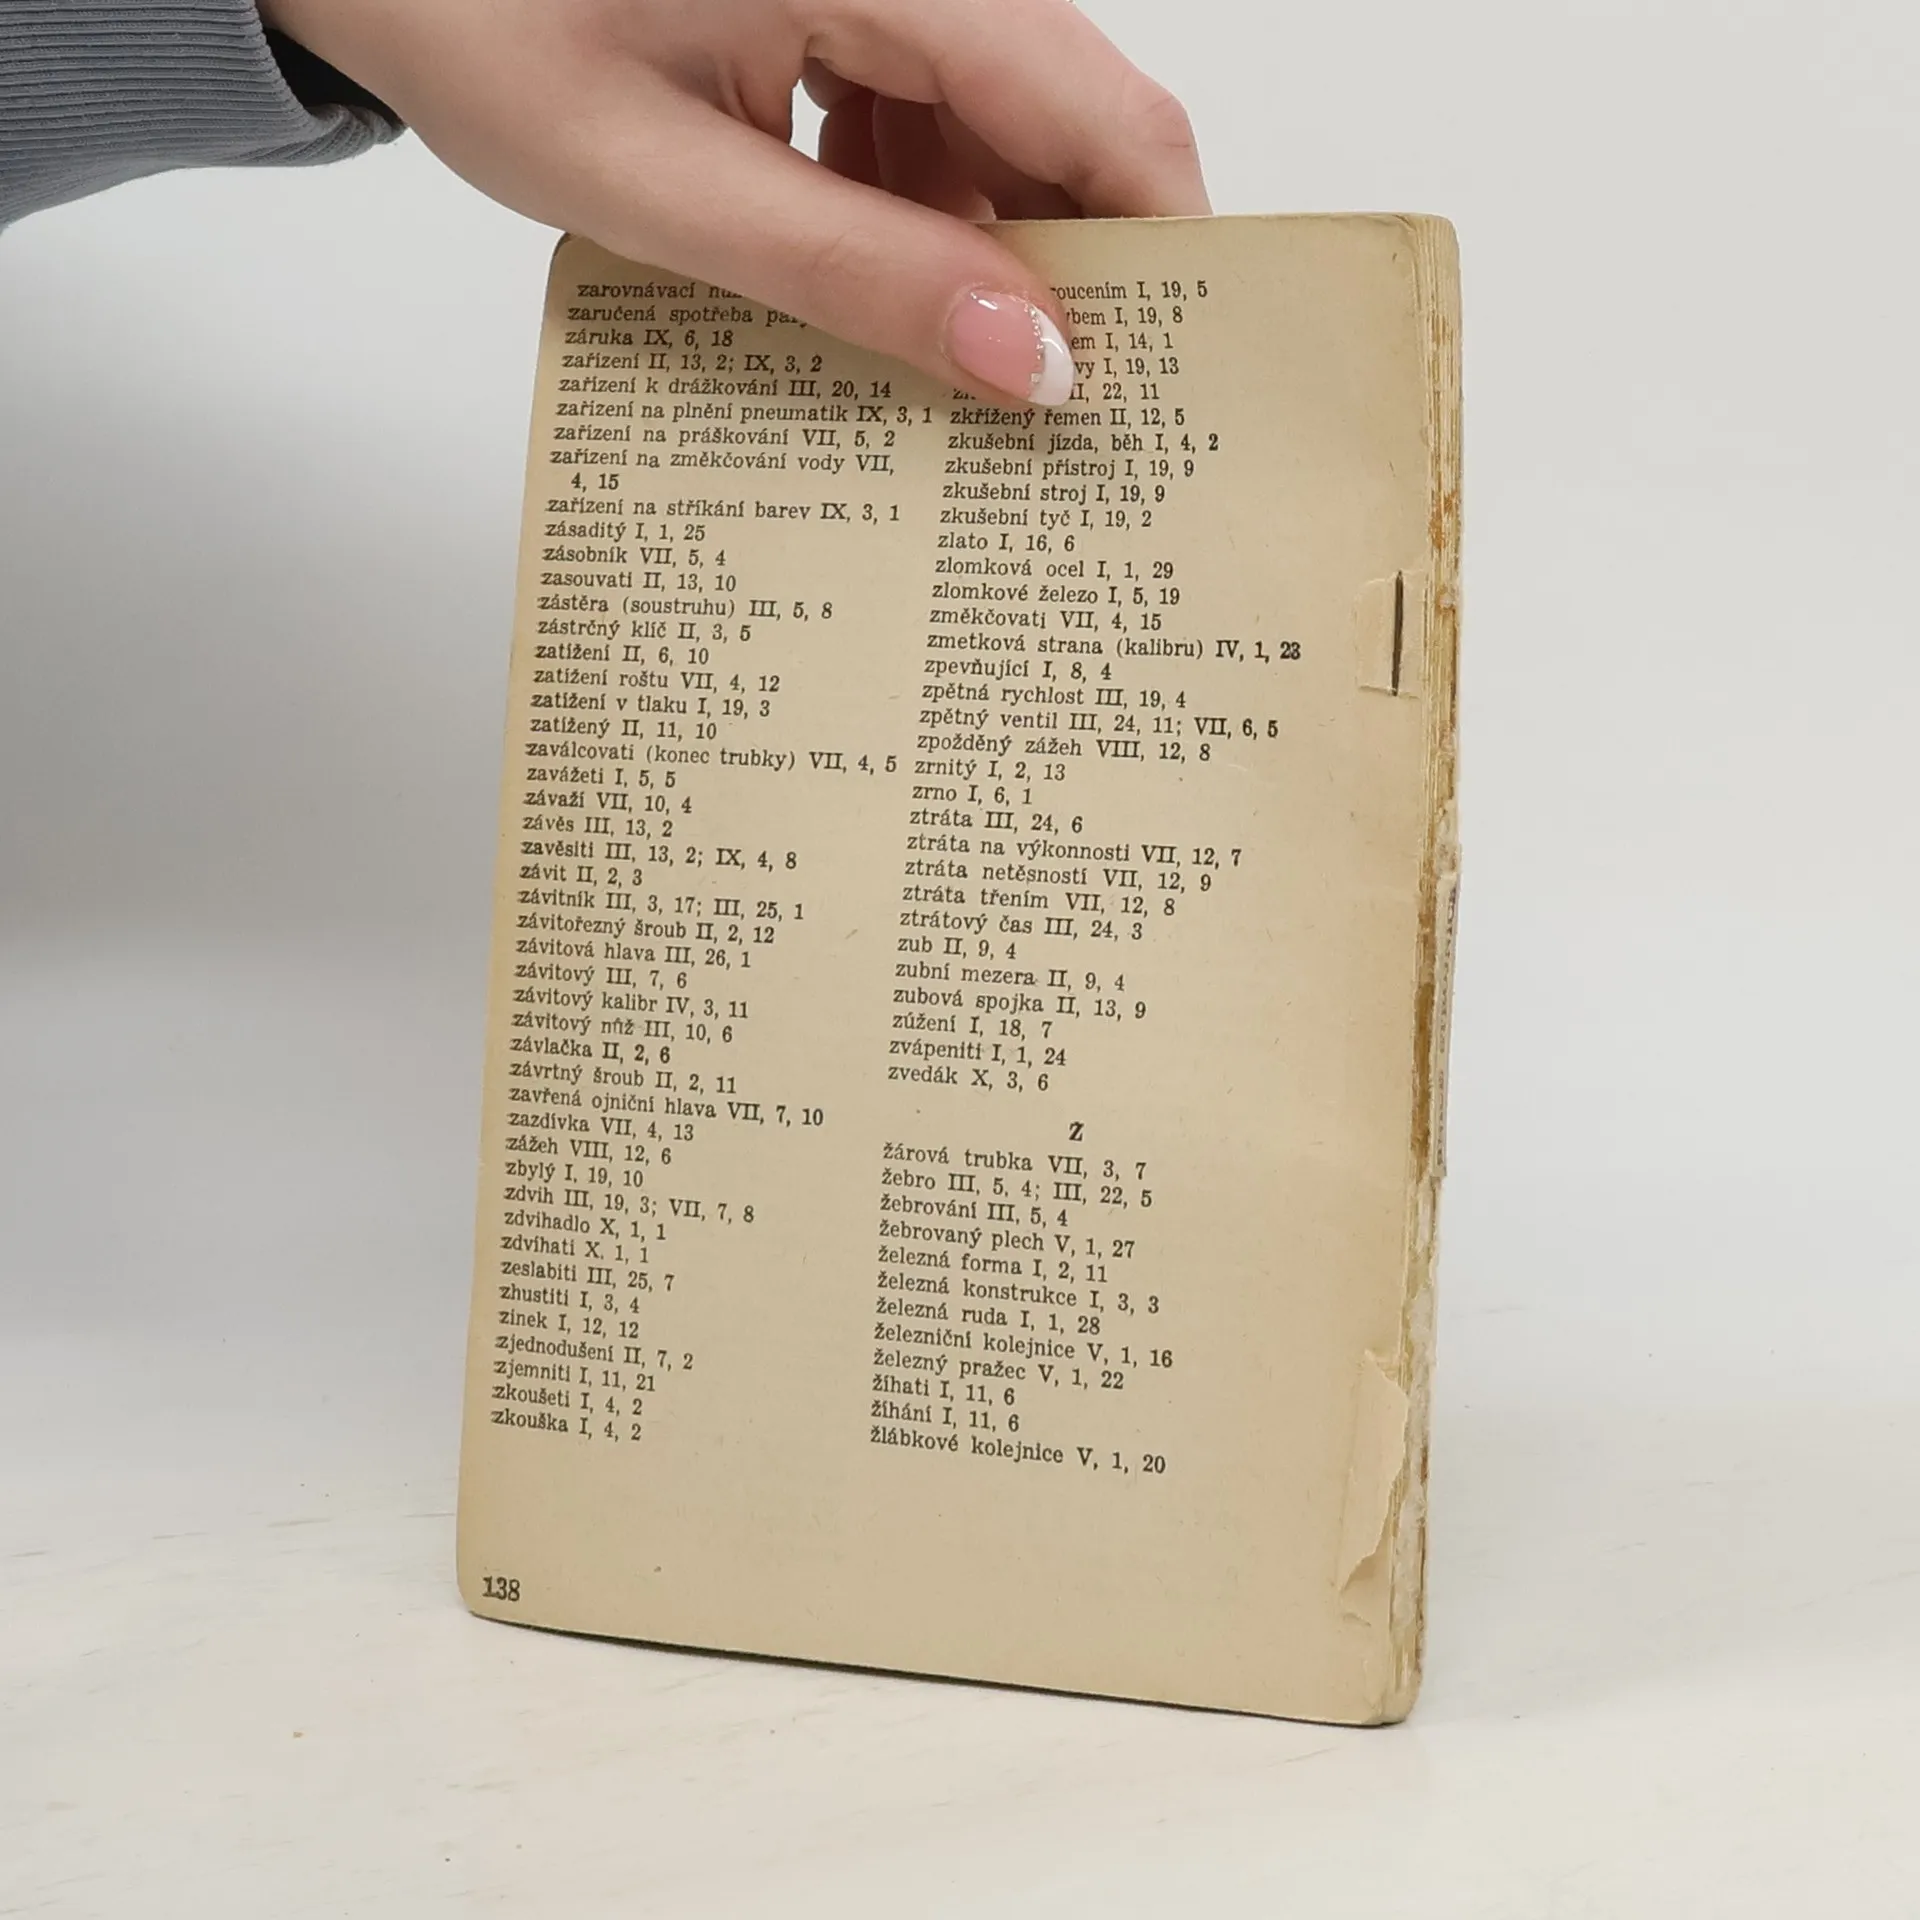 zarovnávací
zaručená spotřeba
záruka IX, 6, 18
zařízení II, 13, 2; IX, 3, 2
zařízení k drážkování III, 20, 14
zařízení na plnění pneumatik IX, 3, 1
zařízení na práškování VII, 5, 2
zařízení na změkčování vody VII,
4, 15
zařízení na stříkání barev IX, 3, 1
zásaditý I, 1, 25
zásobník VII, 5, 4
zasouvati II, 13, 10
zástěra (soustruhu) III, 5, 8
zástrčný klíč II, 3, 5
zatížení II, 6, 10
zatížení roštu VII, 4, 12
zatížení v tlaku I, 19, 3
zatížený II, 11, 10
zaválcovati (konec trubky) VII, 4, 5
zavážeti I, 5, 5
závaží VII, 10, 4
závěs III, 13, 2
zavěsiti III, 13, 2; IX, 4, 8
závit II, 2, 3
závitník III, 3, 17; III, 25, 1
závitořezný šroub II, 2, 12
závitová hlava III, 26, 1
závitový III, 7, 6
závitový kalibr IV, 3, 11
závitový nůž III, 10, 6
závlačka II, 2, 6
závrtný šroub II, 2, 11
zavřená ojniční hlava VII, 7, 10
zazdívka VII, 4, 13
zážeh VIII, 12, 6
zbylý I, 19, 10
zdvih III, 19, 3; VII, 7, 8
zdvihadlo X, 1, 1
zdvíhati X. 1, 1
zeslabiti III, 25, 7
zhustiti I, 3, 4
zinek I, 12, 12
zjednodušení II, 7, 2
zjemniti I, 11, 21
zkoušeti I, 4, 2
zkouška I, 4, 2
138
I, 19, 5
I, 19, 8
I, 14, 1
I, 19, 13
22, 11
zkřížený řemen II, 12, 5
zkušební jízda, běh I, 4, 2
zkušební přístroj I, 19, 9
zkušební stroj I, 19, 9
zkušební tyč I, 19, 2
zlato I, 16, 6
zlomková ocel I, 1, 29
zlomkové železo I, 5, 19
změkčovati VII, 4, 15
zmetková strana (kalibru) IV, 1, 23
zpevňující I, 8, 4
zpětná rychlost III, 19, 4
zpětný ventil III, 24, 11; VII, 6, 5
zpožděný zážeh VIII, 12, 8
zrnitý I, 2, 13
zrno I, 6, 1
ztráta III, 24, 6
ztráta na výkonnosti VII, 12, 7
ztráta netěsností VII, 12, 9
ztráta třením VII, 12, 8
ztrátový čas III, 24, 3
zub II, 9, 4
zubní mezera II, 9, 4
zubová spojka II, 13, 9
zúžení I, 18, 7
zvápeniti I, 1, 24
zvedák X, 3, 6
Ž
žárová trubka VII, 3, 7
žebro III, 5, 4; III, 22, 5
žebrování III, 5, 4
žebrovaný plech V, 1, 27
železná forma I, 2, 11
železná konstrukce I, 3, 3
železná ruda I, 1, 28
železniční kolejnice V, 1, 16
železný pražec V, 1, 22
žíhati I, 11, 6
žíhání I, 11, 6
žlábkové kolejnice V, 1, 20